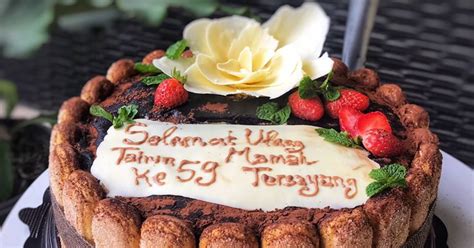 Selamat Ulang
Tahun Mamah
Ke 59 Tersayang